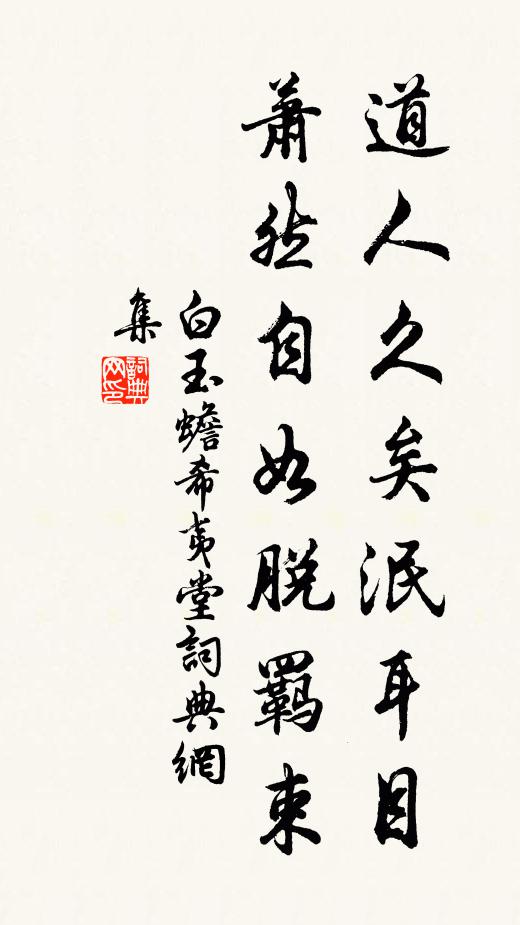 道人久矣泯耳目
蕭然自如脫羈束
白玉蟾希夷堂詞典網
集
詞典
网印